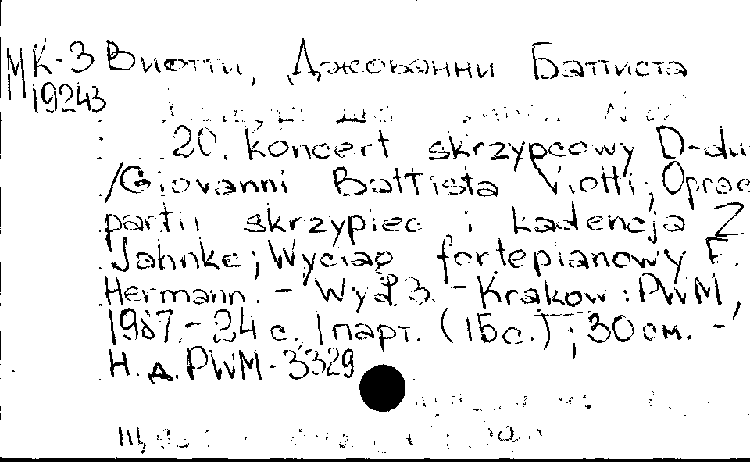 МК-3 Виотти, Джованни Баттиста
19243
20. koncert skrzypcowy D-du
/Giovanni Battista Viotti; Oprac
partii skrzypiec i kadencja Z
Jahnke; Wyciąg fortepianowy F.
Hermann. - Wyd 3. - Krakow: PWM,
1987. - 24 с. 1 парт. (15 с.); 30 см. -
Н. д. PWM-3329